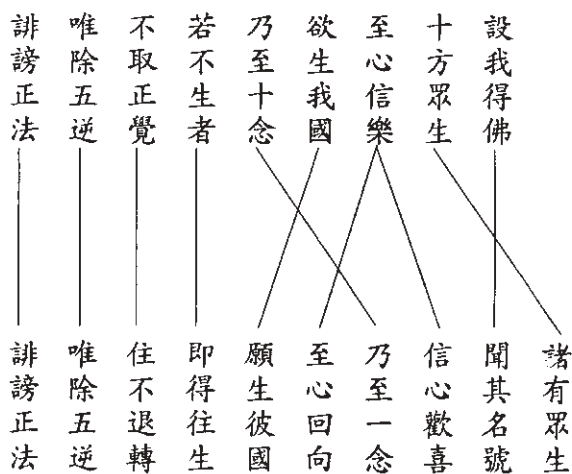 設我得佛
十方眾生
至心信樂
欲生我國
乃至十念
若不生者
不取正覺
唯除五逆
誹謗正法
諸有眾生
聞其名號
信心歡喜
乃至一念
至心回向
願生彼國
即得往生
住不退轉
唯除五逆
誹謗正法